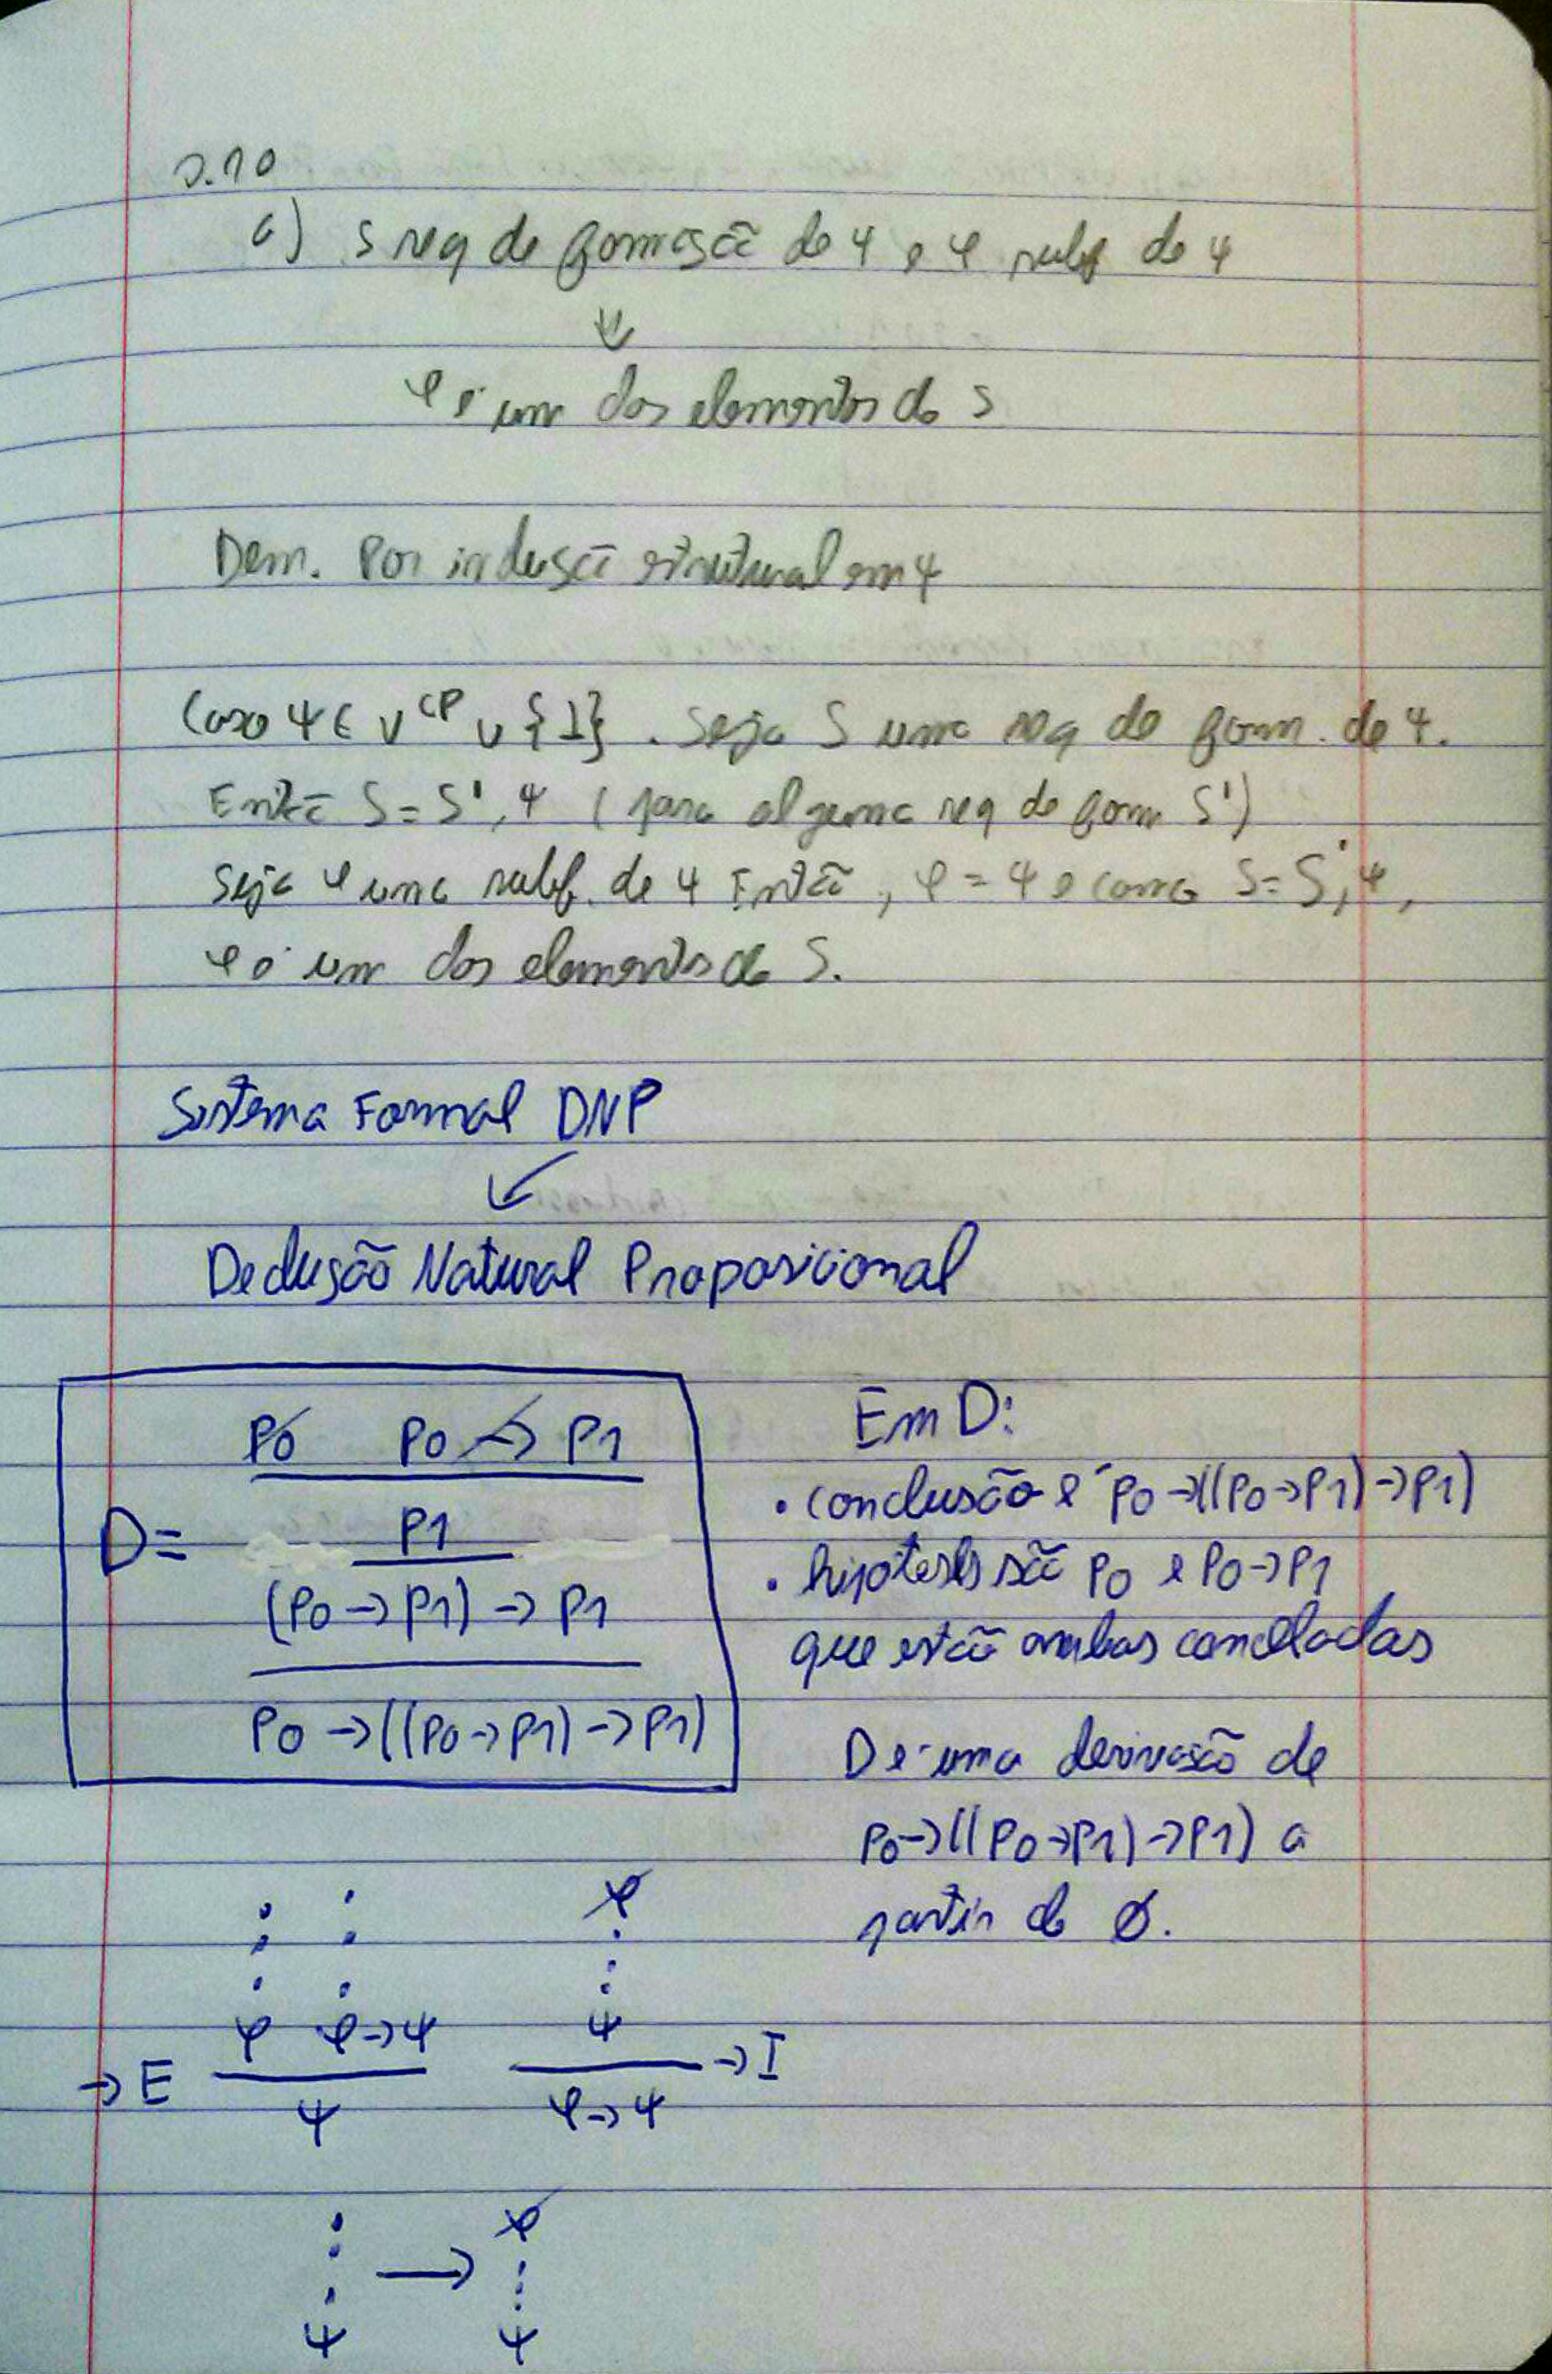 2.10
a) S seq de formação de ψ e φ subf de ψ
⇓
φ é um dos elementos de S
Dem. Por indução estrutural em ψ
Caso ψ ∈ V^CP ∪ {⊥}. Seja S uma seq de form. de ψ.
Então S = S', ψ (para alguma seq de form S')
Seja φ uma subf. de ψ Então, φ = ψ e como S = S', ψ,
φ é um dos elementos de S.
Sistema Formal DNP
↙
Dedução Natural Proposicional
p0 p0 → p1
D = p1
(p0 → p1) → p1
p0 → ((p0 → p1) → p1)
Em D:
• conclusão é p0 → ((p0 → p1) → p1)
• hipóteses são p0 e p0 → p1
que estão ambas canceladas
D é uma derivação de
p0 → ((p0 → p1) → p1) a
partir de ∅.
⋮ ⋮ φ
⋮
φ φ → ψ ψ
→ E → I
ψ φ → ψ
⋮ → φ
⋮
ψ ψ